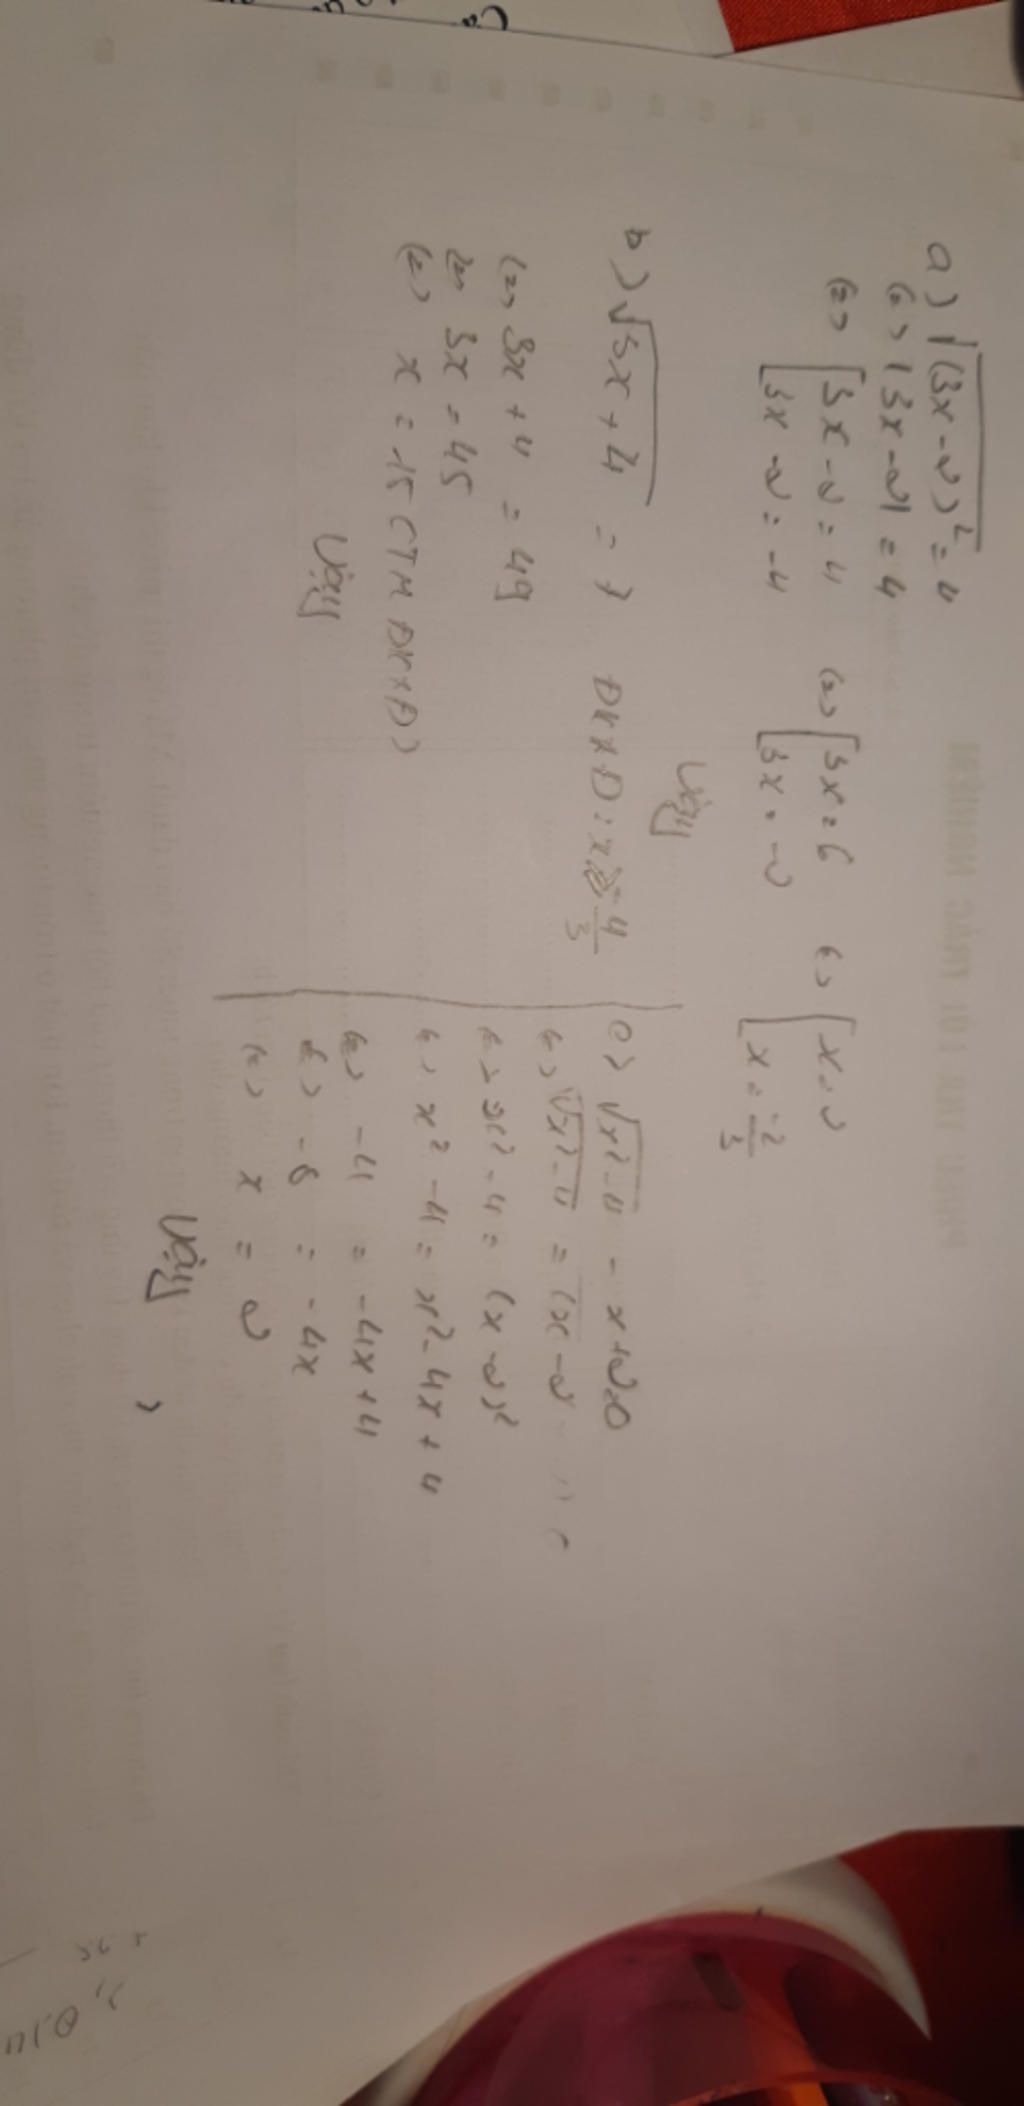 a) √(3x-2)² = 4
(=) |3x-2| = 4
(=) [3x-2 = 4 (=) [3x = 6 (=) [x = 2
[3x-2 = -4 [3x = -2 [x = -2/3
Vậy
b) √3x+4 = 7 ĐKXĐ: x ≥ -4/3
(=) 3x + 4 = 49
(=) 3x = 45
(=) x = 15 (TM ĐKXĐ)
Vậy
c) √x²-4 - x+2=0
(=) √x²-4 = x-2
(=) x²-4 = (x-2)²
(=) x²-4 = x²-4x+4
(=) -4 = -4x+4
(=) -8 = -4x
(=) x = 2
Vậy